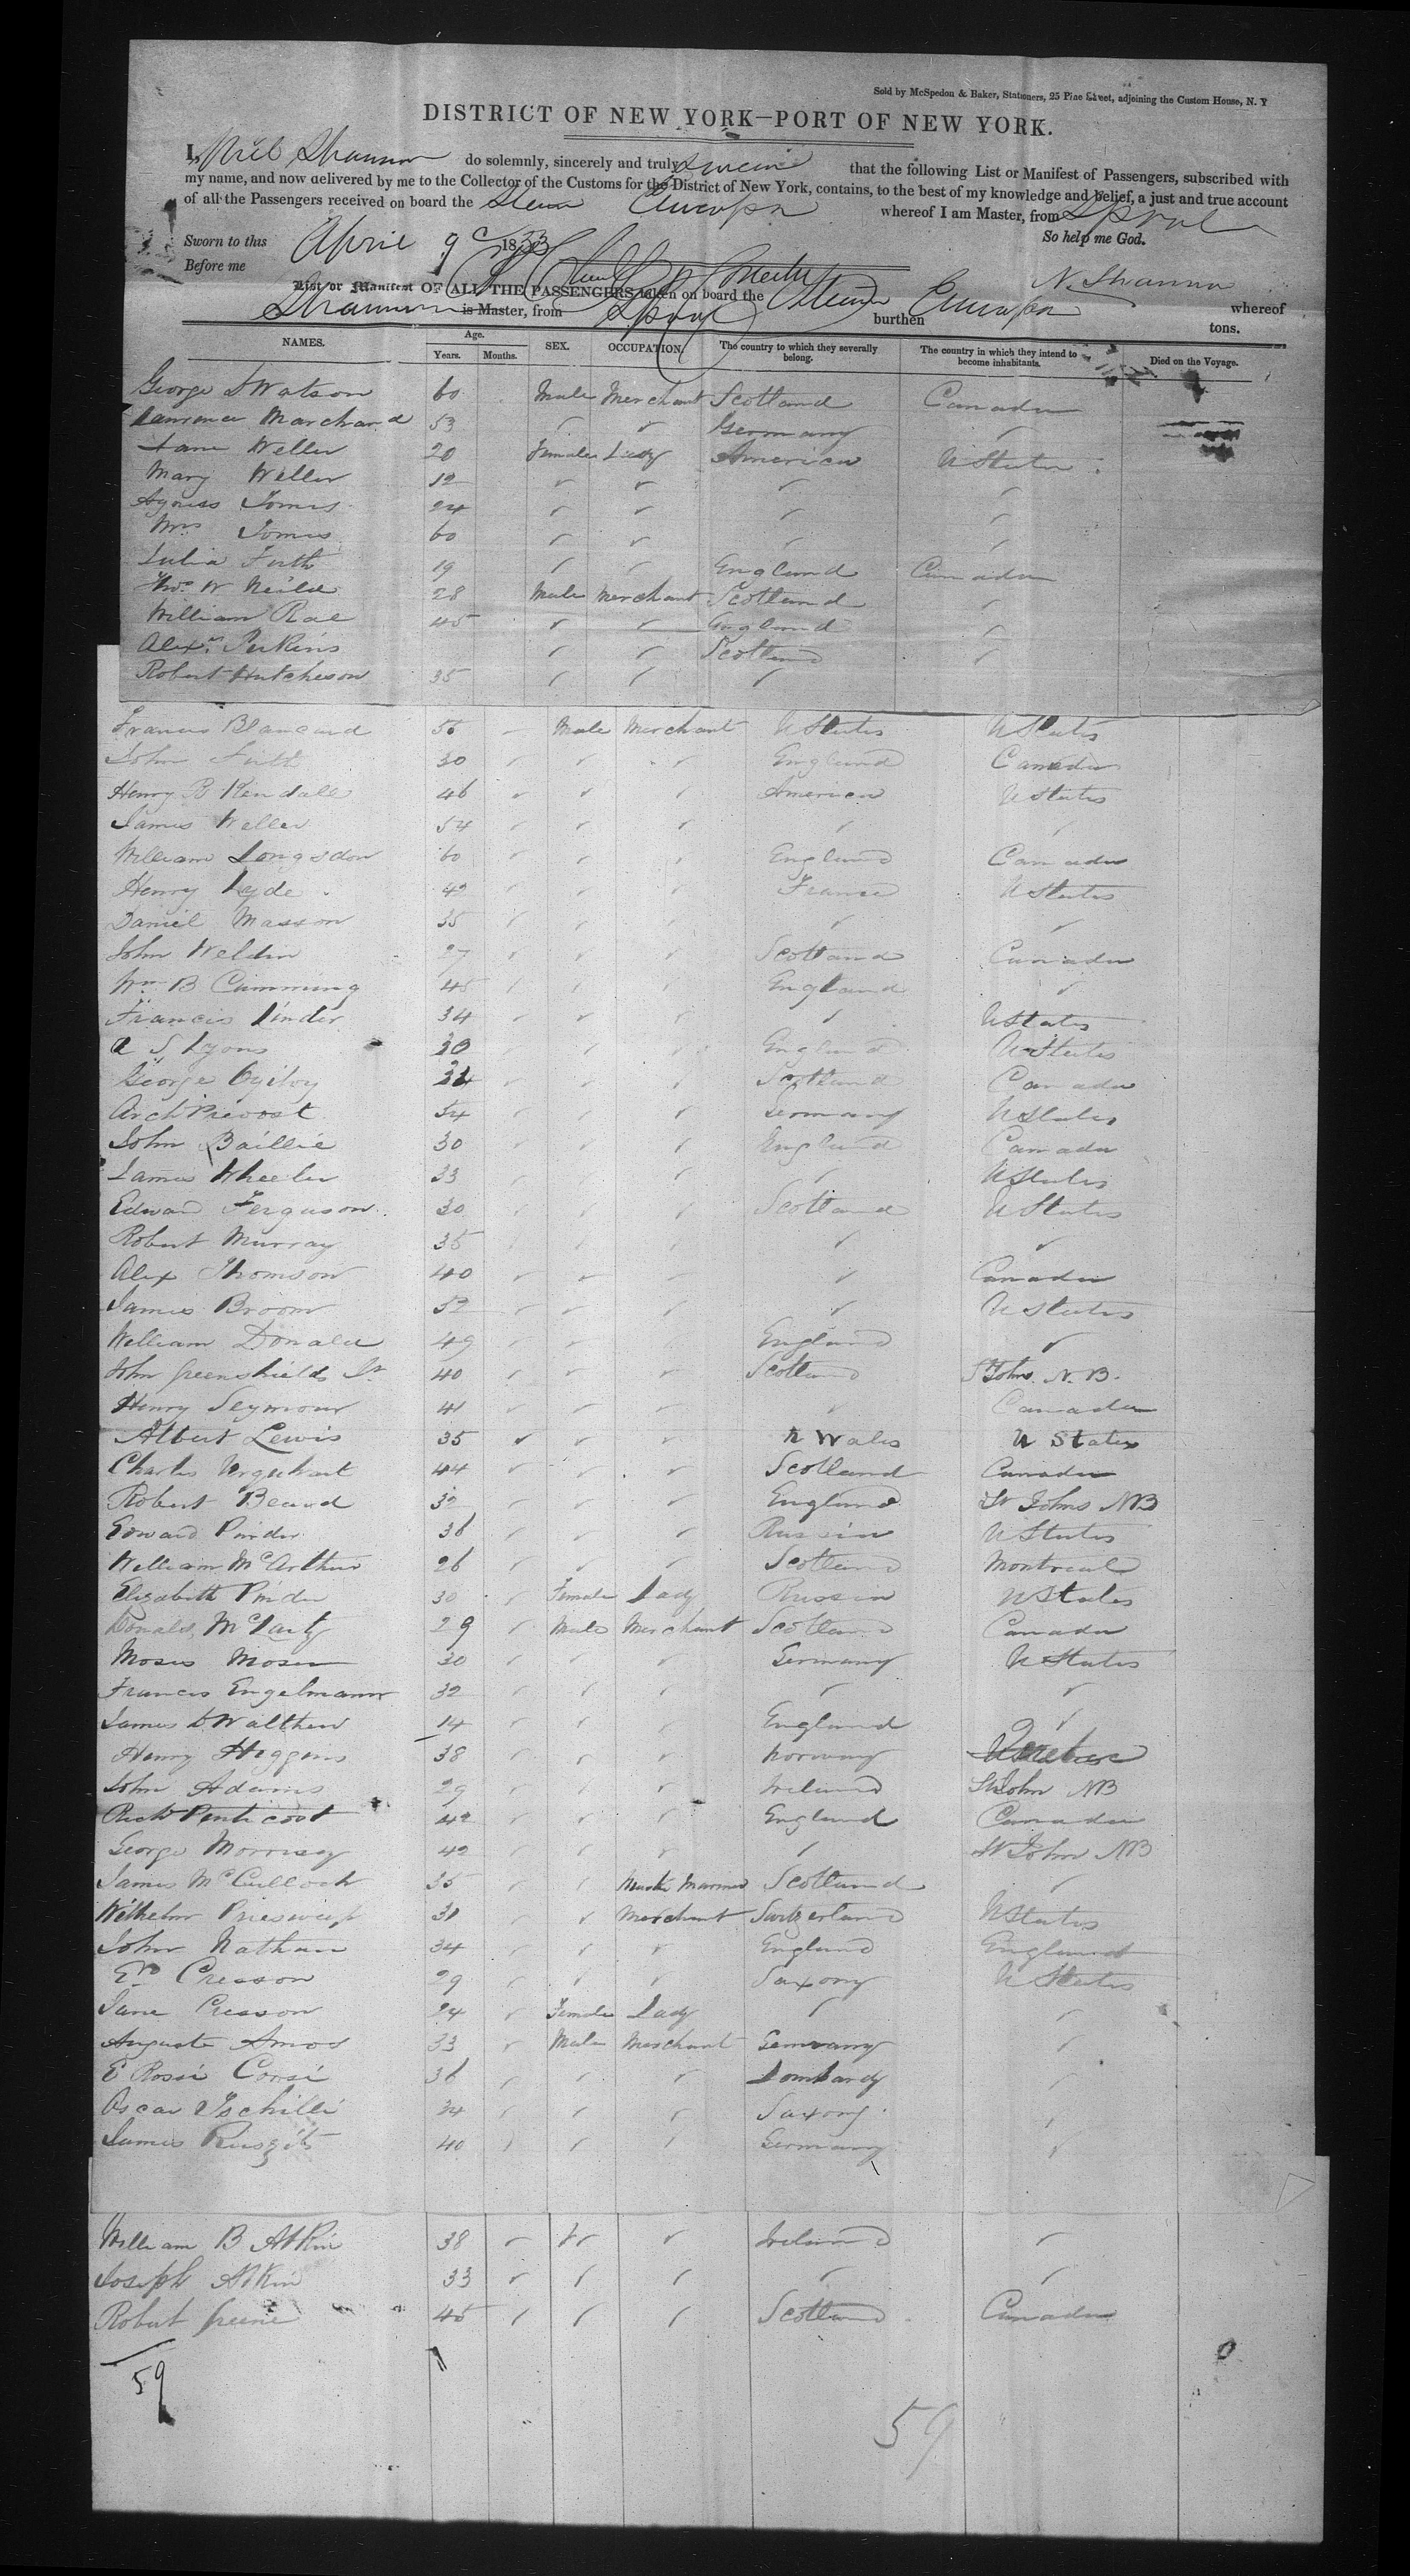 Sold by McSpedon & Baker, Stationers, 25 Pine Street, adjoining the Custom House, N. Y
DISTRICT OF NEW YORK—PORT OF NEW YORK.
I, Neil Shannon do solemnly, sincerely and truly swear that the following List or Manifest of Passengers, subscribed with
my name, and now delivered by me to the Collector of the Customs for the District of New York, contains, to the best of my knowledge and belief, a just and true account
of all the Passengers received on board the Steam Europa whereof I am Master, from Lpool
Sworn to this April 9 1853 So help me God.
Before me N. Shannon
List or Manifest OF ALL THE PASSENGERS taken on board the Steamer Europa whereof
Shannon is Master, from Lpool burthen tons.
NAMES. Age. Years. Months. SEX. OCCUPATION. The country to which they severally belong. The country in which they intend to become inhabitants. Died on the Voyage.
George D Watson 60 Male Merchant Scotland Canada
Lawrence Marchand 53 ✓ ✓ Germany ✓
Jane Weller 20 Female Lady America U States
Mary Weller 12 ✓ ✓ ✓ ✓
Agness Tomes 24 ✓ ✓ ✓ ✓
Mrs Tomes 60 ✓ ✓ ✓ ✓
Julia Firth 19 ✓ ✓ England Canada
Thos W Neild 28 Male Merchant Scotland ✓
William Rae 45 ✓ ✓ England ✓
Alexr Perkins ✓ ✓ Scotland ✓
Robert Hutcheson 35 ✓ ✓ ✓
Francis Blancard 56 Male Merchant U States U States
John Firth 30 ✓ ✓ ✓ England Canada
Henry B Kendall 46 ✓ ✓ ✓ American U States
James Weller 54 ✓ ✓ ✓ ✓ ✓
William Longsdon 60 ✓ ✓ ✓ England Canada
Henry Hyde 42 ✓ ✓ ✓ France U States
Daniel Masson 35 ✓ ✓ ✓ ✓ ✓
John Weldin 27 ✓ ✓ ✓ Scotland Canada
Wm B Cumming 45 ✓ ✓ ✓ England ✓
Francis Pinder 34 ✓ ✓ ✓ ✓ U States
A S Lyons 30 ✓ ✓ ✓ England U States
George Ogilvy ✓ ✓ ✓ Scotland Canada
Archd Prevost 54 ✓ ✓ ✓ Germany U States
John Baillie 30 ✓ ✓ ✓ England Canada
James Wheeler 33 ✓ ✓ ✓ ✓ U States
Edward Ferguson 30 ✓ ✓ ✓ Scotland U States
Robert Murray 35 ✓ ✓ ✓ ✓ ✓
Alex Thomson 40 ✓ ✓ ✓ ✓ Canada
James Broom 52 ✓ ✓ ✓ ✓ U States
William Donald 49 ✓ ✓ ✓ England ✓
John Greenshields Sr 40 ✓ ✓ ✓ Scotland St Johns N. B.
Henry Seymour 41 ✓ ✓ ✓ ✓ Canada
Albert Lewis 35 ✓ ✓ ✓ N Wales U States
Charles Urquhart 44 ✓ ✓ ✓ Scotland Canada
Robert Beard 32 ✓ ✓ ✓ England St Johns NB
Edward Pinder 36 ✓ ✓ ✓ Russia U States
William McArthur 26 ✓ ✓ ✓ Scotland Montreal
Elizabeth Pinder 30 ✓ Female Lady Russia U States
Donald McTarty 29 ✓ Male Merchant Scotland Canada
Moses Moser 30 ✓ ✓ ✓ Germany U States
Francis Engelmann 32 ✓ ✓ ✓ ✓ ✓
James D Walthew 14 ✓ ✓ ✓ England ✓
Henry Higgins 38 ✓ ✓ ✓ Norway Quebec
John Adams 29 ✓ ✓ ✓ Ireland St John NB
Richd Penticost 42 ✓ ✓ ✓ England Canada
George Morrisey 42 ✓ ✓ ✓ ✓ St John NB
James McCulloch 35 ✓ ✓ Master Mariner Scotland ✓
Wilhelm 31 ✓ ✓ Merchant Switzerland U States
John Nathan 34 ✓ ✓ ✓ England England
Ed Cresson 29 ✓ ✓ ✓ Saxony U States
Jane Cresson 24 ✓ Female Lady ✓ ✓
Auguste Amos 33 ✓ Male Merchant Germany ✓
E Rossi Corsi 36 ✓ ✓ ✓ Lombardy ✓
Oscar Tschilli 34 ✓ ✓ ✓ Saxony ✓
James 40 ✓ ✓ ✓ Germany ✓
William B Atkin 38 ✓ ✓ ✓ Ireland ✓
Joseph Atkin 33 ✓ ✓ ✓ ✓ ✓
Robert Greene 45 ✓ ✓ ✓ Scotland Canada
59
59